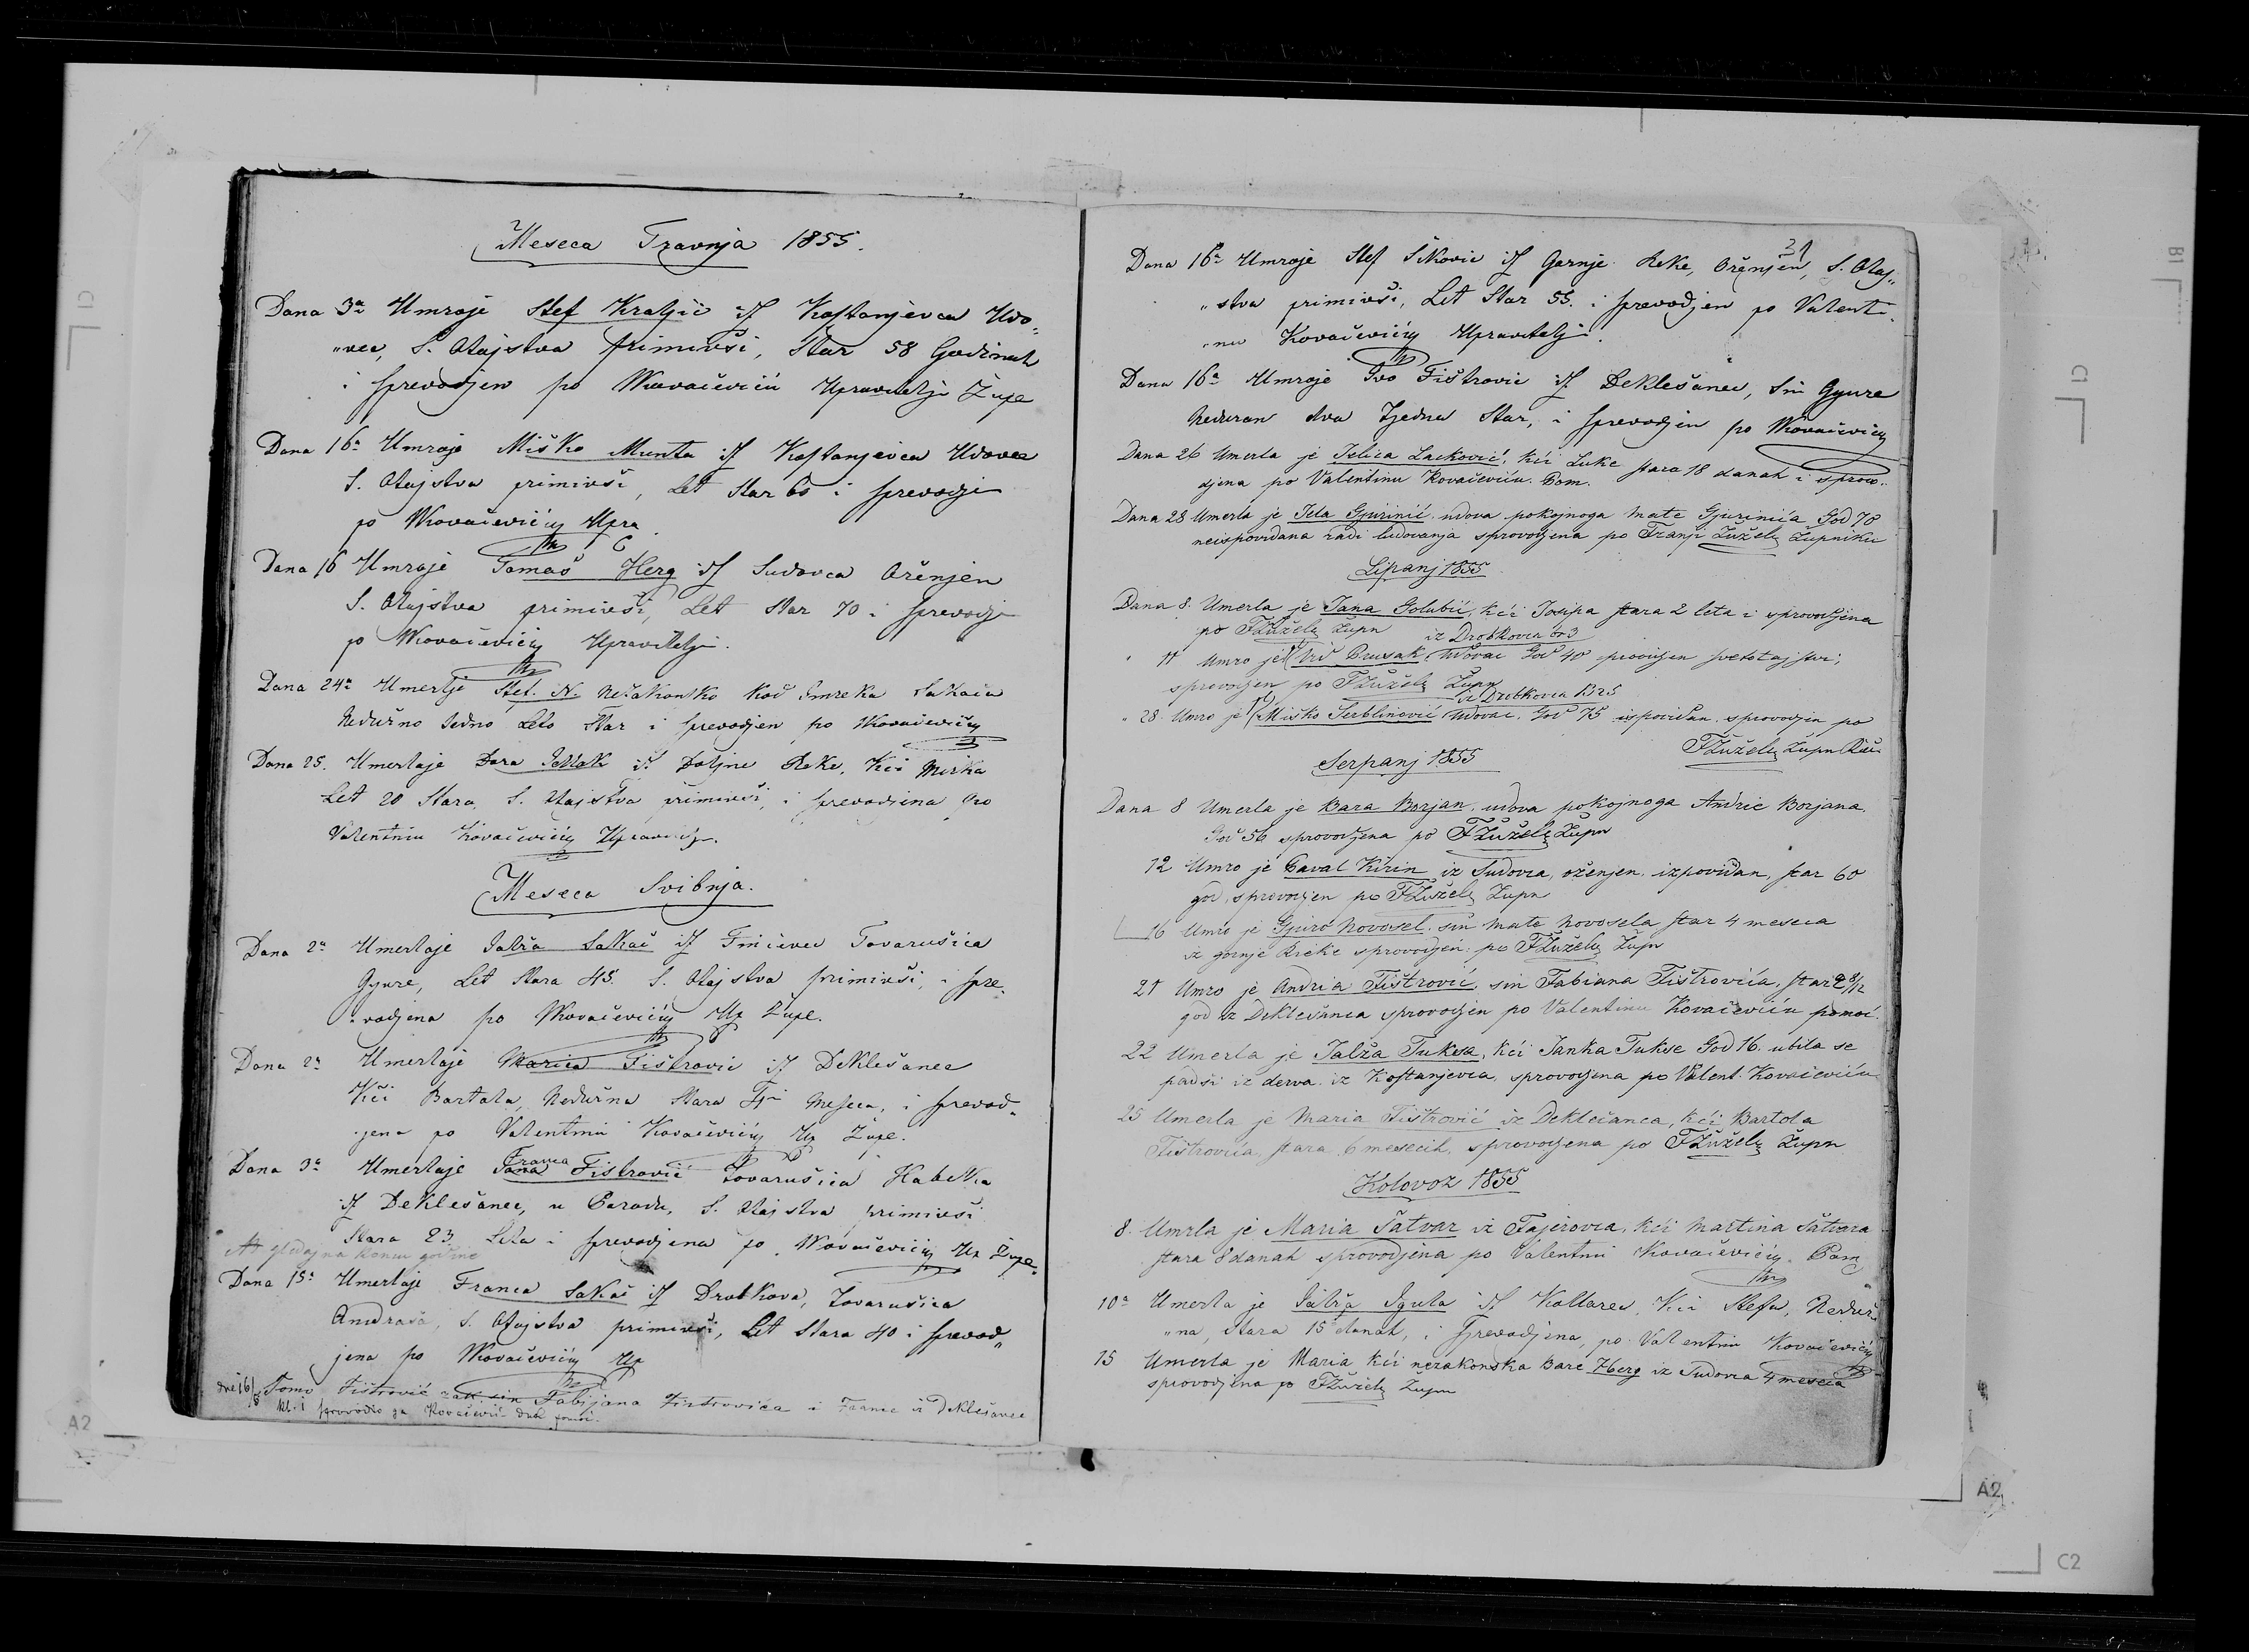 Meseca Travnja 1855.
Dana 3a Umroje Stef Kraljić iz Kostanjevca Udo„
„vca, S. Otajstva primivši, Star 58 Godinah
i sprevodjen po VKovačeviću Upravitelju Župe
Dana 16a Umroje Miško Munta iz Kostanjevca Udovec
S. Otajstva primivši, Let Star 60 i sprevodje
po VKovačeviću Upra
Dana 16 Umroje Tomaš Herg iz Sudovca Oženjen
S. Otajstva primivši, Let Star 70 i sprevodje
po VKovačeviću Upravitelju.
Dana 24a Umerlje Stef. N. Nezakonsko kod Imreka Sakača
Nedužno Jedno Leto Star i sprevodjen po VKovačeviću
Dana 25. Umerlaje Dora iz Doljne Reke, Kći Mirka
Let 20 Stara, S. Otajstva primivši, i sprevodjena po
Valentinu Kovačeviću Upravitelju.
Meseca Svibnja.
Dana 2a Umerlaje Jalža Sakač iz Tovarušica
Gyure, Let Stara 45. S. Otajstva primivši, i spre„
„vodjena po VKovačeviću Up Župe.
Dana 2a Umerlaje Marica Fištrović iz Deklešanec
Kći Bartola, Nedužna Stara Meseca, i sprevod„
„jena po Valentinu Kovačeviću Up Župe.
Franca
Dana 3a Umerlaje Jana Fištrović Tovarušica
iz Deklešanec, u Porodu, S. Otajstva primivši
Stara 23 Leta i sprevodjena po VKovačeviću Up Župe.
gledaj na koncu godine
Dana 15a Umerlaje Franca Sakač iz Drobkova, Tovarušica
Andraša, S. Otajstva primivši, Let Stara 40 i sprevod„
jena po VKovačeviću Up
dne 16/5 Tomo Fištrović zak. sin Fabijana Fištrovića i France iz Deklešanec
sprovodio ga Kovačević duh. pomoć.
21
Dana 16a Umroje Stef Siković iz Gornje Reke, Oženjen, S. Otaj„
„stva primivši, Let Star 55. i sprevodjen po Valenti„
„nu Kovačeviću Upravitelju.
Dana 16a Umroje Ivo Fištrović iz Deklešanec, Sin Gyure
Neduxan dva Tjedna Star, i sprevodjen po VKovačeviću
Dana 26 Umerla je Jelica Lacković, kći Luke stara 18 danah i sprovo„
djena po Valentinu Kovačeviću. Pom.
Dana 28 Umerla je Jela Gjurinić, udova pokojnoga Mate Gjurinića God 70
neispovidana radi ludovanja sprovodjena po Franji Žuželu Župniku
Lipanj 1855
Dana 8. Umerla je Jana Golubić, kći Josipa stara 2 leta i sprovodjena
po FŽuželu Župn
iz Drobkovca br 3
„ 11 Umro je Vid Prusak, udovac God 40 providjen svetotajstvi,
sprovodjen po FŽuželu Župn
iz Drobkovca Br 25
„ 28 Umro je Miško Serblinović udovac, God 75 ispovidan, sprovodjen po
FŽuželu Župn
Serpanj 1855
Dana 8 Umerla je Bara Borjan, udova pokojnoga Andrie Borjana.
God 56 sprovodjena po FŽuželu Župn
12 Umro je Paval Kirin iz Sudovca, oženjen, izpovidan, star 60
god, sprovodjen po FŽuželu Župn
16 Umro je Gjuro Novosel, sin Mate Novosela star 4 meseca
iz gornje Rieke sprovodjen po FŽuželu Župn
21 Umro je Andria Fištrović, sin Fabiana Fištrovića, star 2 8/12
god iz Deklešanca sprovodjen po Valentinu Kovačeviću pomoć.
22 Umerla je Jalža Tuksa, kći Janka Tukse God 16. ubila se
padši iz derva iz Kostanjevca, sprovodjena po Valent. Kovačeviću
25 Umerla je Maria Fištrović iz Deklešanca, kći Bartola
Fištrovića, stara 6 mesecih, sprovodjena po FŽuželu Župn
Kolovoz 1855
8. Umrla je Maria Šatvar iz Fajerovca, kći Martina Šatvara
stara 8 danah sprovodjena po Valentinu Kovačeviću. Pom
10a Umerla je Jalža Igula iz Kollarec, Kći Stefa, Neduž„
„na, stara 15 danah, i sprevodjena, po Valentinu Kovačeviću
15 Umerla je Maria kći nezakonska Bare Herg iz Sudovca 4 meseca
sprovodjena po FŽuželu Župn